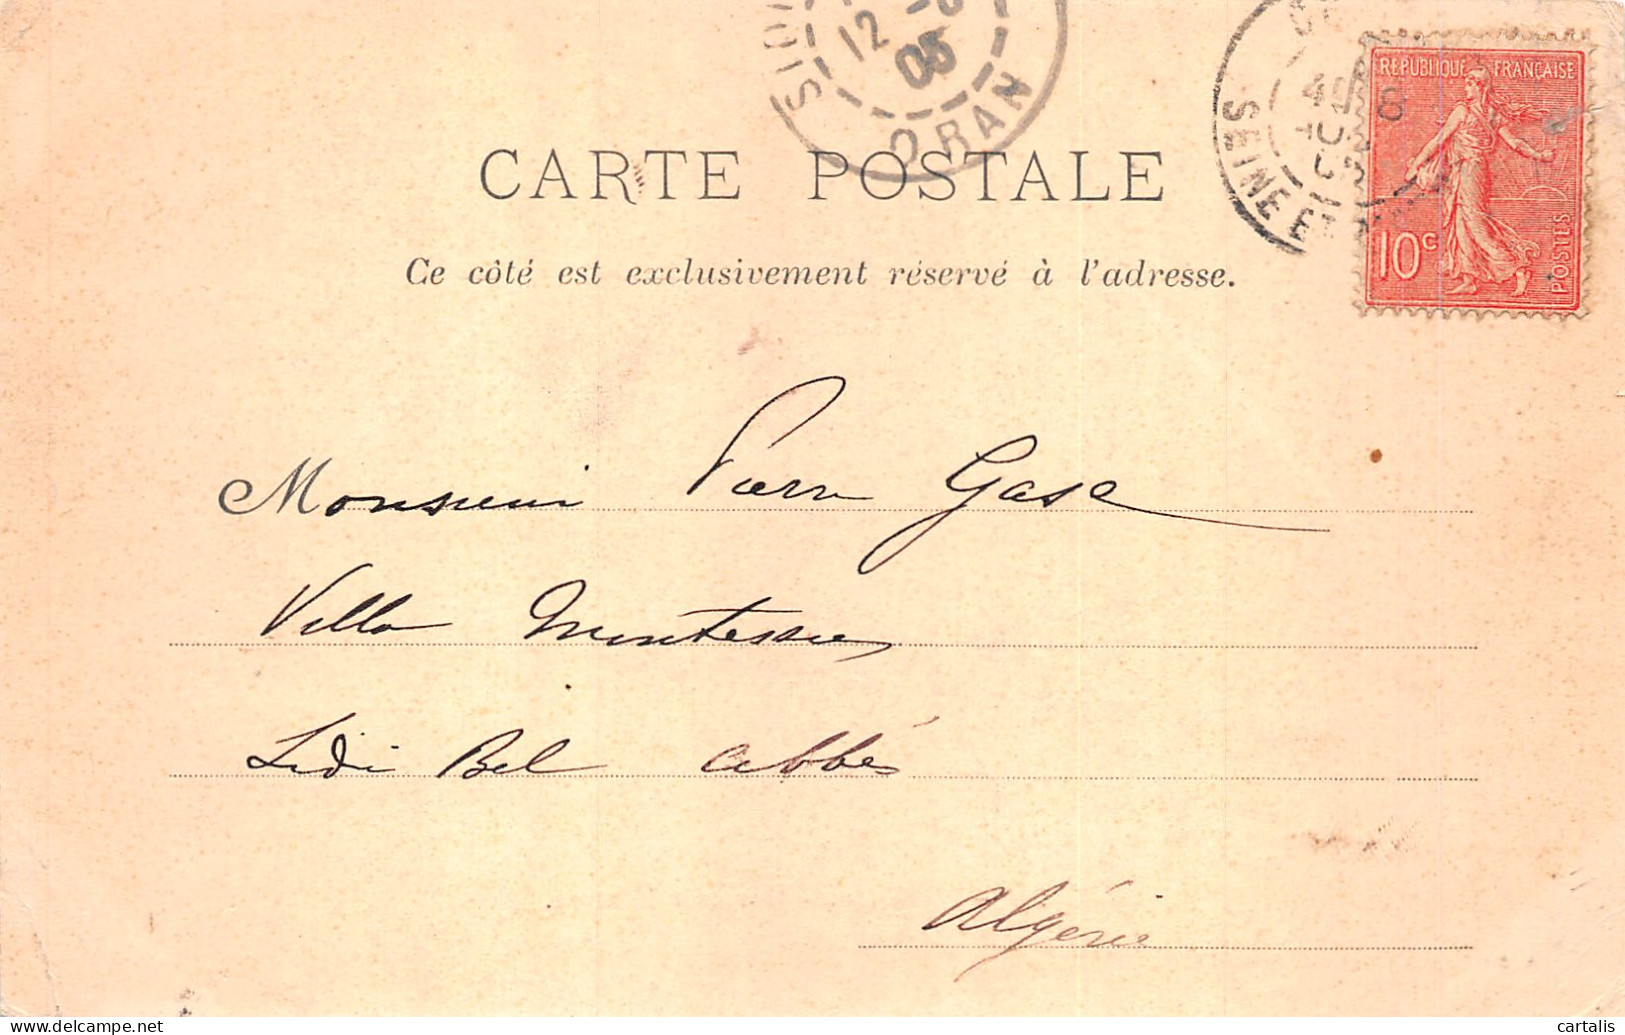 SIDI
12
05
ORAN
SEINE E
8
RÉPUBLIQUE FRANÇAISE
10 c
POSTES
CARTE POSTALE
Ce côté est exclusivement réservé à l'adresse.
Monsieur Pierre Gase
Villa
Sidi Bel abbès
Algérie
delcampe.net
cartalis